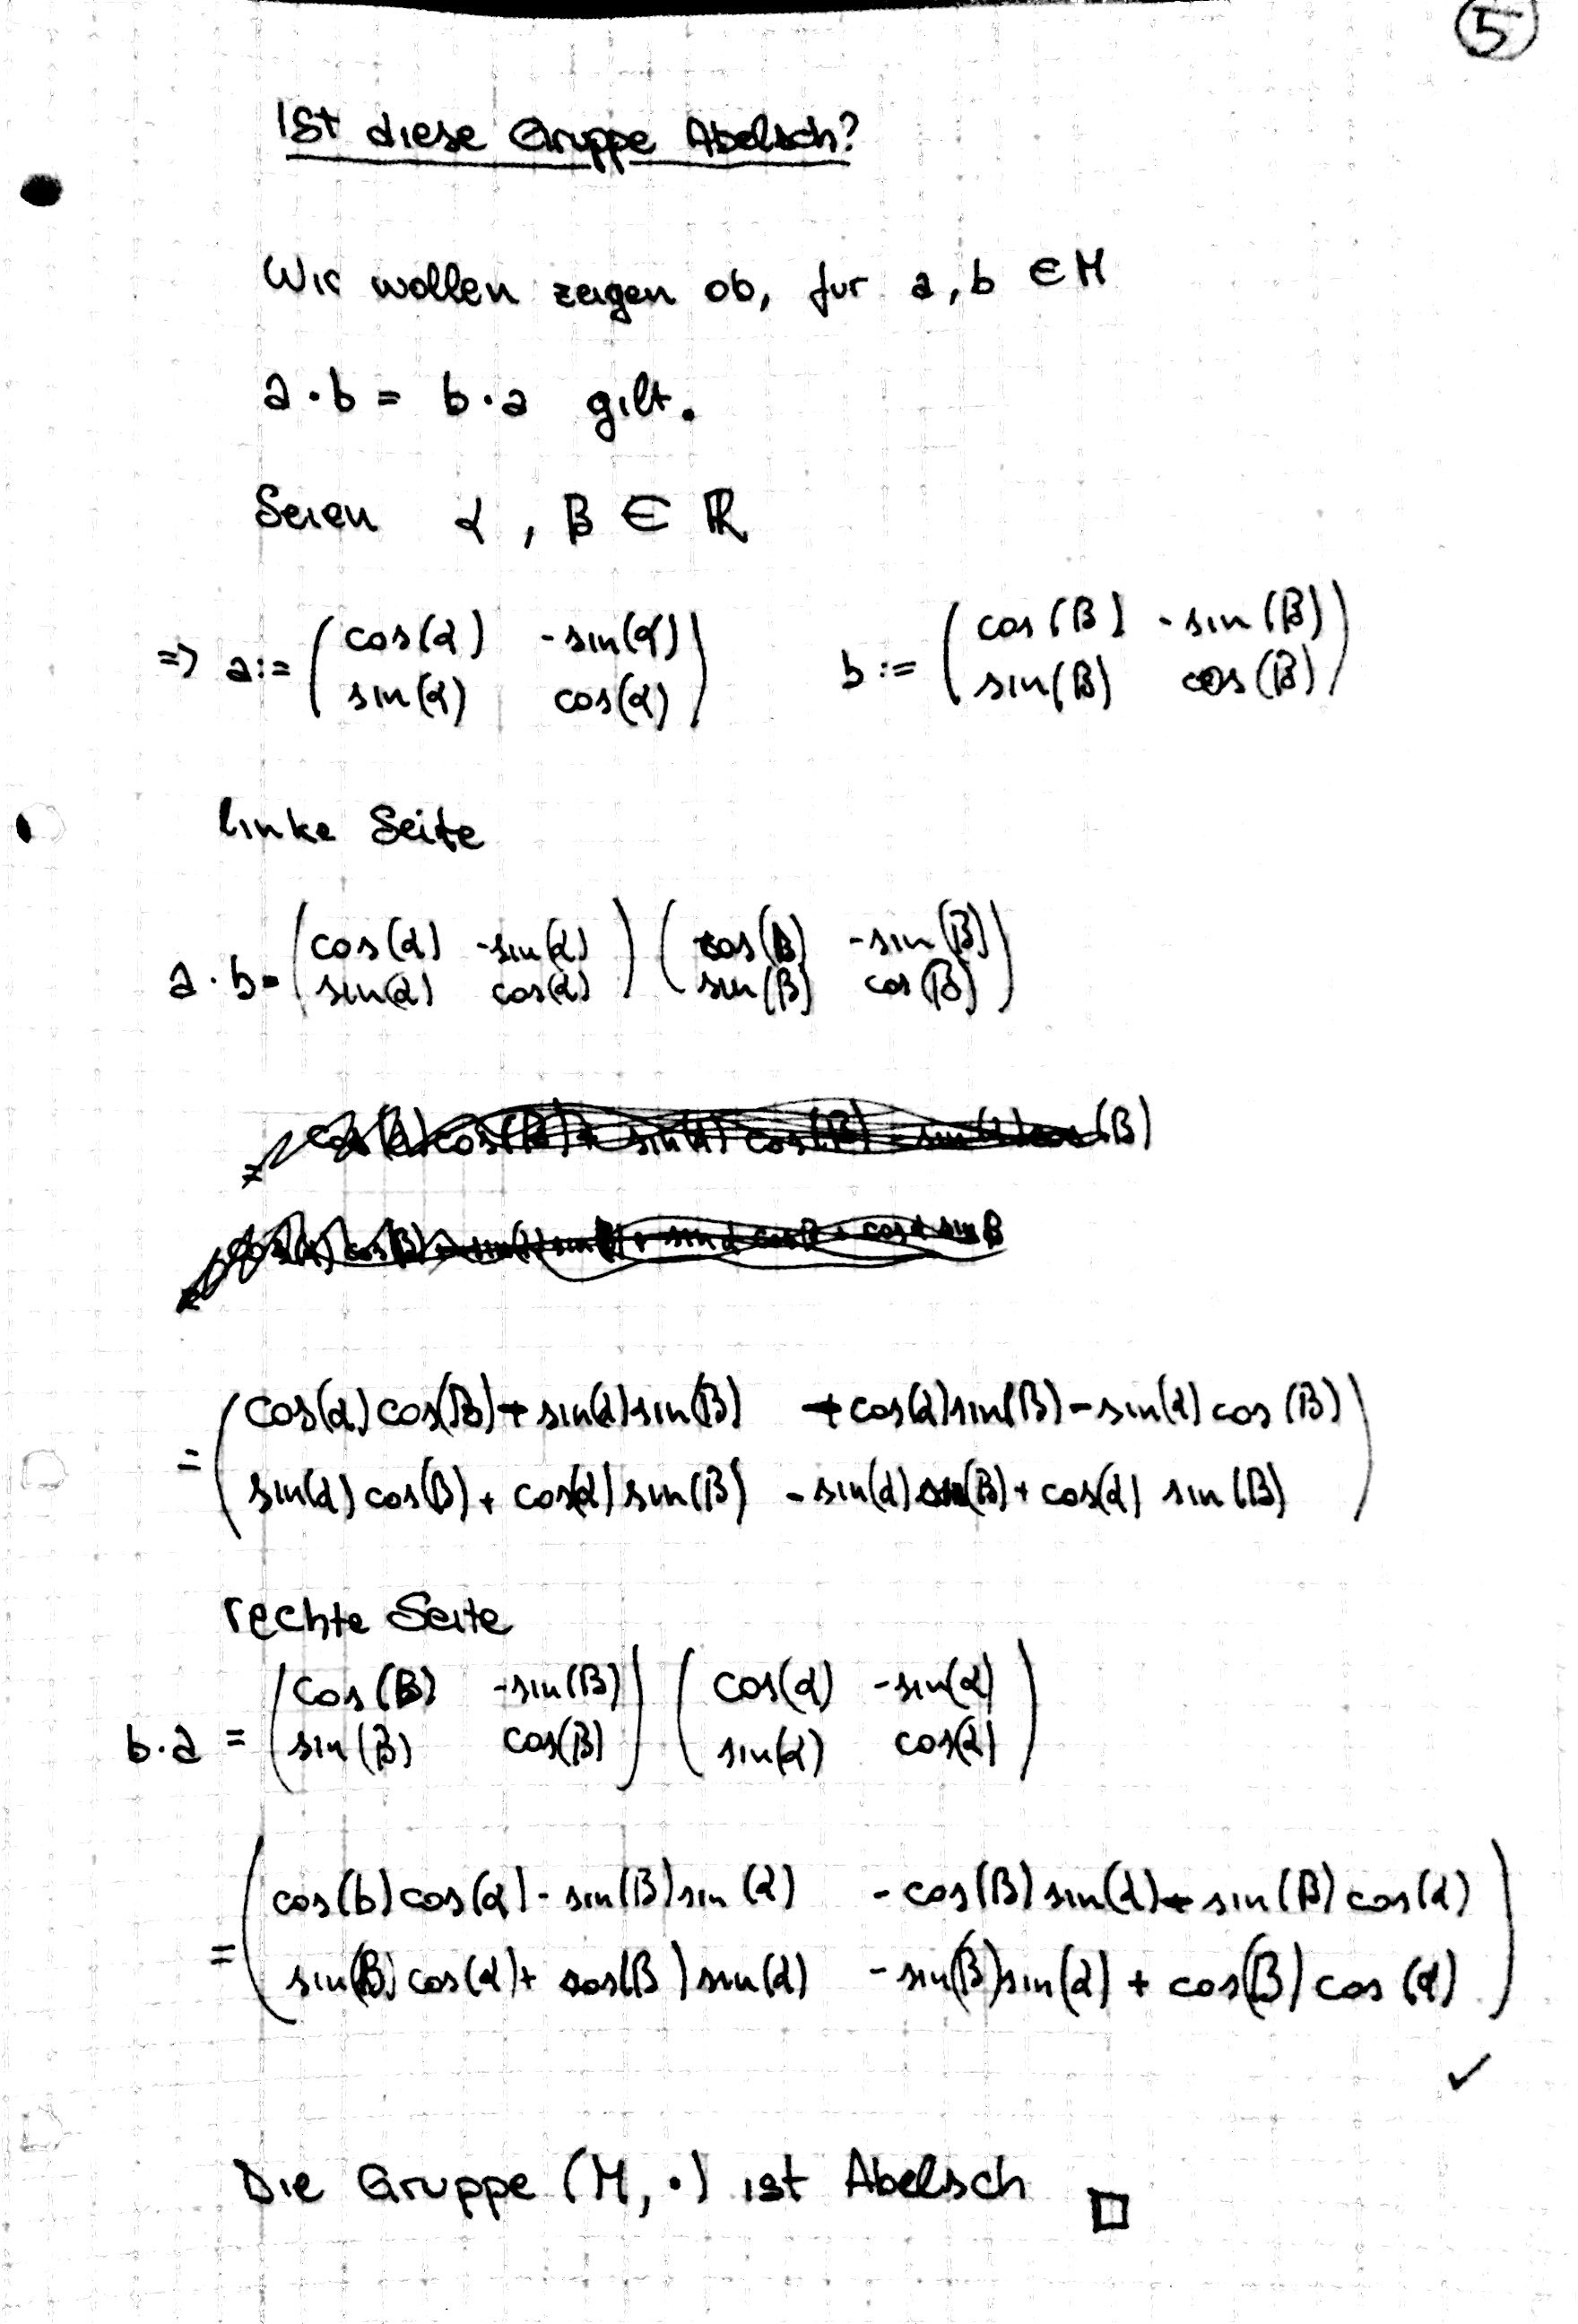 5
Ist diese Gruppe Abelsch?
Wir wollen zeigen ob, fur a, b ∈ M
a · b = b · a gilt.
Seien α, β ∈ ℝ
=> a := ( cos(α) -sin(α) ) b := ( cos(β) -sin(β) )
( sin(α) cos(α) ) ( sin(β) cos(β) )
linke Seite
a · b = ( cos(α) -sin(α) ) ( cos(β) -sin(β) )
( sin(α) cos(α) ) ( sin(β) cos(β) )
= ( cos(α) cos(β) + sin(α) sin(β) + cos(α) sin(β) - sin(α) cos(β) )
( sin(α) cos(β) + cos(α) sin(β) - sin(α) (β) + cos(α) sin(β) )
rechte Seite
b · a = ( cos(β) -sin(β) ) ( cos(α) -sin(α) )
( sin(β) cos(β) ) ( sin(α) cos(α) )
= ( cos(b) cos(α) - sin(β) sin(α) - cos(β) sin(α) + sin(β) cos(α) )
( sin(β) cos(α) + cos(β) sin(α) - sin(β) sin(α) + cos(β) cos(α) )
✓
Die Gruppe (M, ·) ist Abelsch □